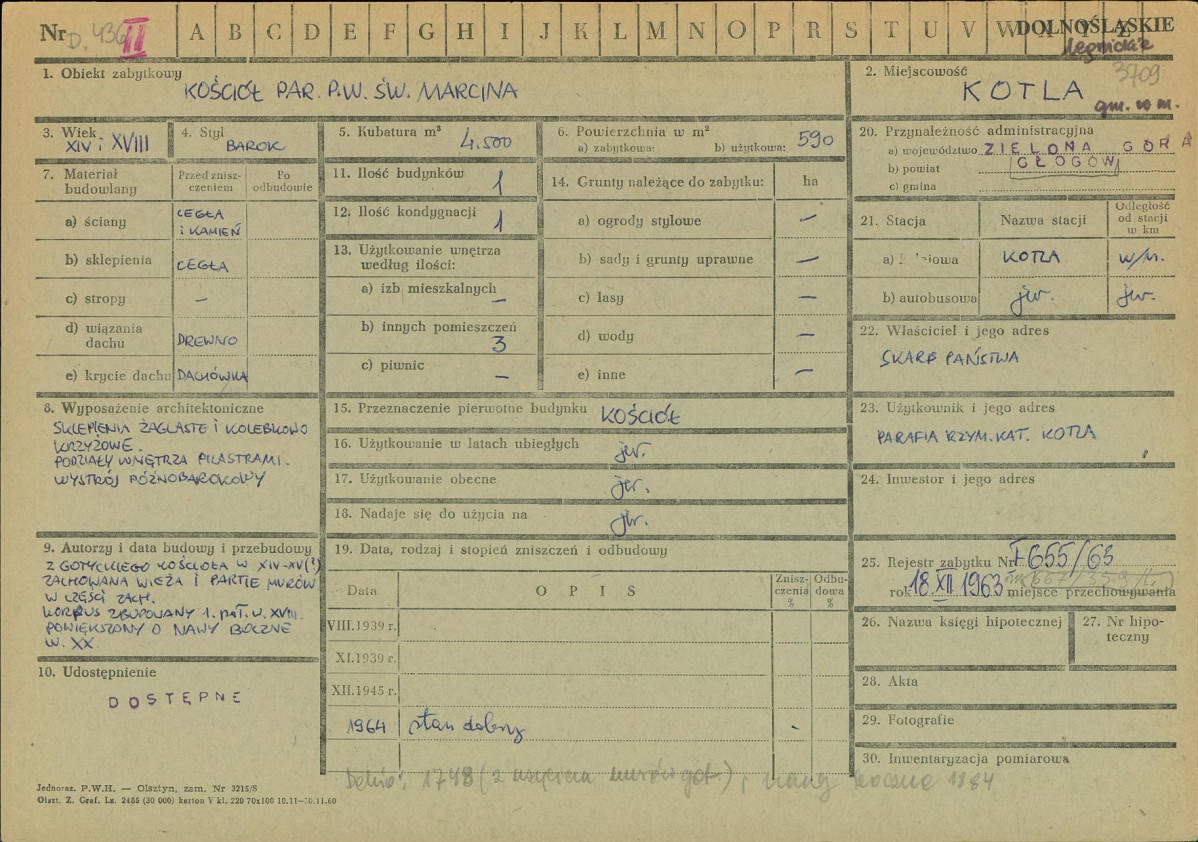 Nr D. 436 II A B C D E F G H I J K L M N O P R S T U V W X Y Z DOLNOŚLĄSKIE
legnickie
3709
1. Obiekt zabytkowy
KOŚCIÓŁ PAR. P.W. ŚW. MARCINA
2. Miejscowość
KOTLA
gm. w m.
3. Wiek
XIV i XVIII
4. Styl
BAROK
5. Kubatura m³
4.500
6. Powierzchnia w m²
a) zabytkowa: b) użytkowa: 590
20. Przynależność administracyjna
a) województwo ZIELONA GÓRA
b) powiat GŁOGÓW
c) gmina
7. Materiał budowlany
Przed zniszczeniem
Po odbudowie
a) ściany CEGŁA I KAMIEŃ
b) sklepienia CEGŁA
c) stropy –
d) wiązania dachu DREWNO
e) krycie dachu DACHÓWKA
11. Ilość budynków 1
12. Ilość kondygnacji 1
13. Użytkowanie wnętrza
według ilości:
a) izb mieszkalnych –
b) innych pomieszczeń 3
c) piwnic –
14. Grunty należące do zabytku: ha
a) ogrody stylowe –
b) sady i grunty uprawne –
c) lasy –
d) wody –
e) inne –
21. Stacja Nazwa stacji Odległość od stacji w km
a) KOTLA w/m.
b) autobusowa jw. jw.
22. Właściciel i jego adres
SKARB PAŃSTWA
8. Wyposażenie architektoniczne
SKLEPIENIA ŻAGLASTE I KOLEBKOWO
KRZYŻOWE.
PODZIAŁY WNĘTRZA PILASTRAMI.
WYSTRÓJ PÓŹNOBAROKOWY
15. Przeznaczenie pierwotne budynku KOŚCIÓŁ
16. Użytkowanie w latach ubiegłych jw.
17. Użytkowanie obecne jw.
18. Nadaje się do użycia na jw.
23. Użytkownik i jego adres
PARAFIA RZYM. KAT. KOTLA
24. Inwestor i jego adres
9. Autorzy i data budowy i przebudowy
Z GOTYCKIEGO KOŚCIOŁA W XIV-XV(?)
ZACHOWANA WIEŻA I PARTIE MURÓW
W CZĘŚCI ZACH.
KORPUS ZBUDOWANY 1. POŁ. W. XVIII.
POWIĘKSZONY O NAWY BOCZNE
W. XX.
19. Data, rodzaj i stopień zniszczeń i odbudowy
Data OPIS Zniszczenia % Odbudowa %
VIII.1939 r.
XI.1939 r.
XII.1945 r.
1964 stan dobry -
25. Rejestr zabytku Nr 655/63
rok 18.XII 1963 miejsce przechowywania
26. Nazwa księgi hipotecznej
27. Nr hipoteczny
28. Akta
29. Fotografie
30. Inwentaryzacja pomiarowa
10. Udostępnienie
DOSTĘPNE
1748 (z użyciem murów got.), nawy boczne 1884
Jednoraz. P.W.H. — Olsztyn, zam. Nr 3215/S
Olszt. Z. Graf. Lz. 2455 (30 000) karton V kl. 220 70x100 10.11—30.11.60